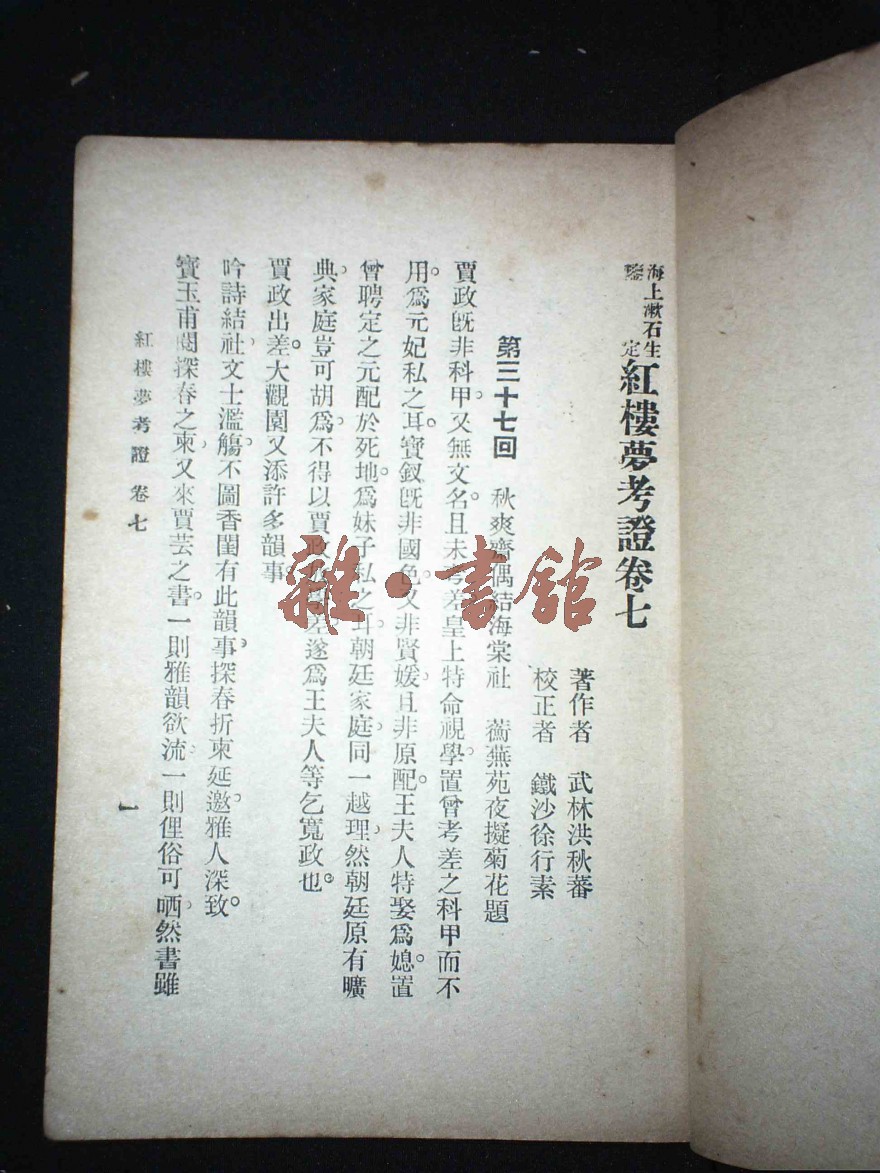 海上漱石生鑒定
紅樓夢考證卷七
著作者　武林洪秋蕃
校正者　鐵沙徐行素
第三十七回　秋爽齋偶結海棠社　蘅蕪苑夜擬菊花題
賈政旣非科甲，又無文名。且未考差，皇上特命視學。置曾考差之科甲而不
用。爲元妃私之耳。寶釵旣非國色，又非賢媛，且非原配。王夫人特娶爲媳。置
曾聘定之元配於死地。爲妹子私之耳。朝廷家庭，同一越理，然朝廷原有曠
典，家庭豈可胡爲，不得以賈政差遂爲王夫人等乞寬政也。
賈政出差。大觀園又添許多韻事。
吟詩結社，文士濫觴，不圖香閨有此韻事，探春折柬延邀，雅人深致。
寶玉甫閱探春之柬，又來賈芸之書。一則雅韻欲流，一則俚俗可哂，然書雖
紅樓夢考證　卷七
一
雜·書館